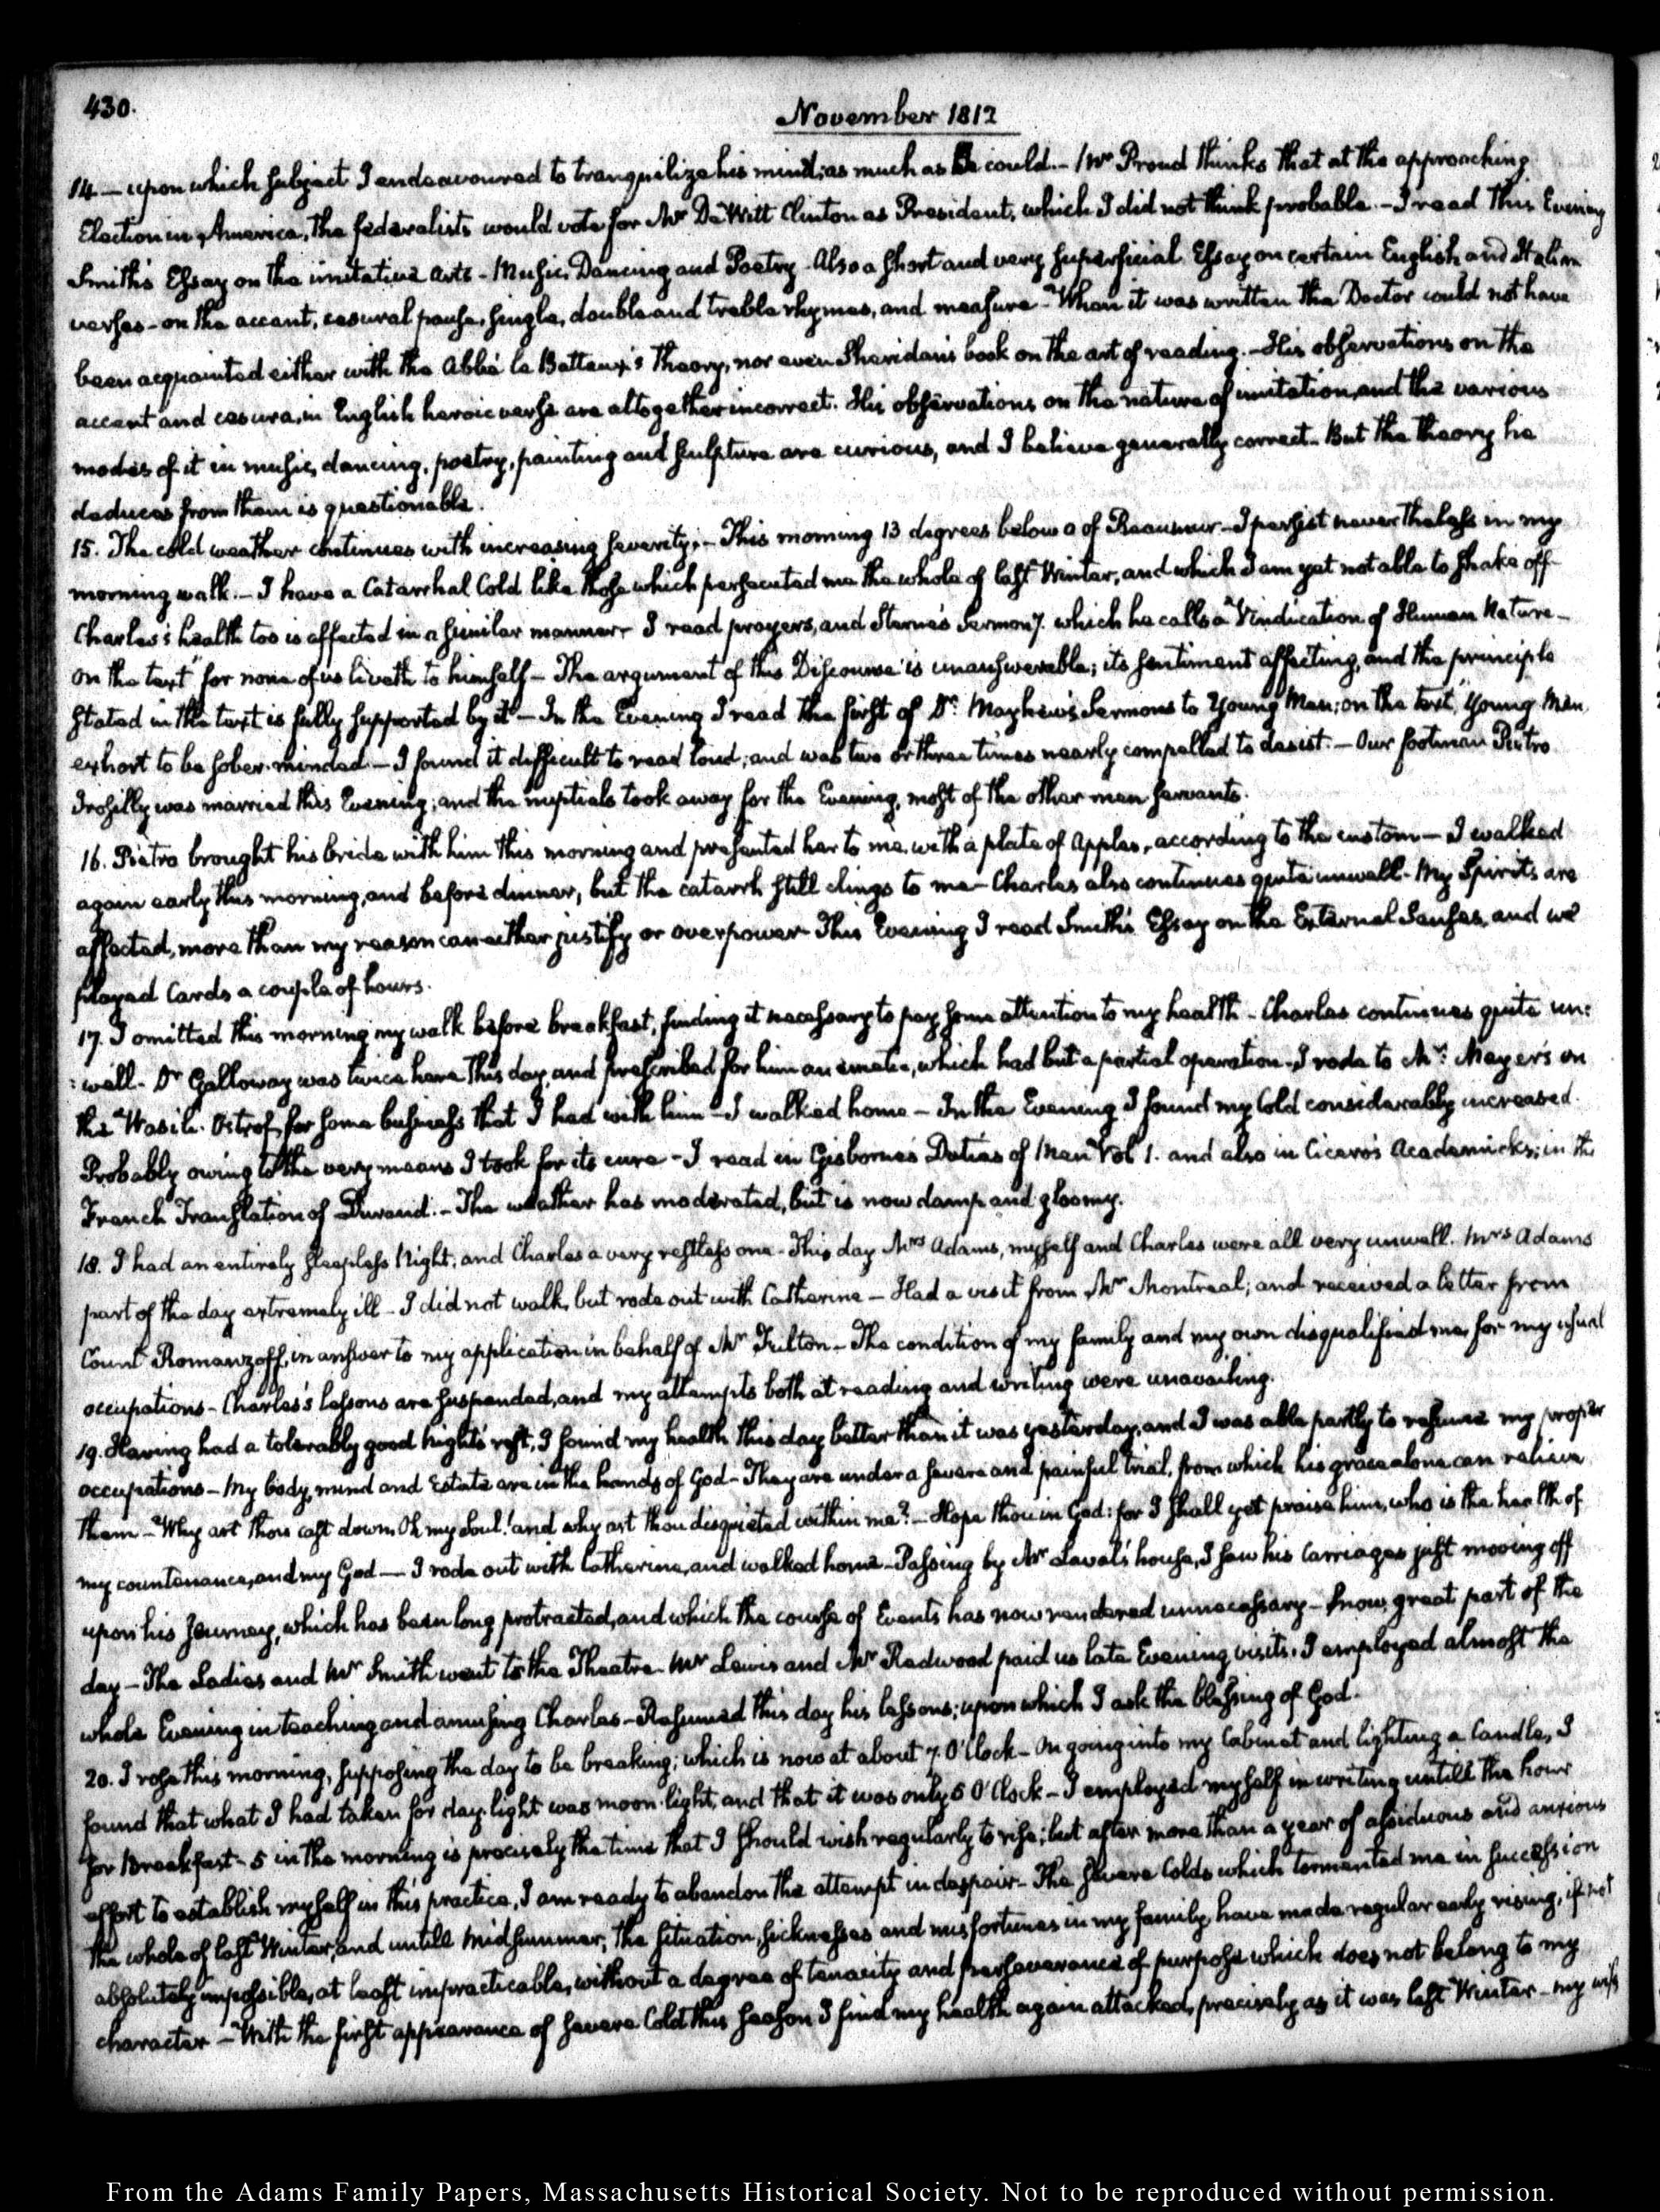 430.
November 1812
14. — upon which subject I endeavoured to tranquilize his mind, as much as I could. — Mr Proud thinks that at the approaching
Election in America, the federalists would vote for Mr De Witt Clinton as President, which I did not think probable. — I read this Evening
Smith's Essay on the imitative arts — Music, Dancing and Poetry. Also a short and very superficial Essay on certain English and Italian
verses — on the accent, cesural pause, single, double and treble rhymes, and measure — When it was written the Doctor could not have
been acquainted either with the Abbé le Batteux's Theory, nor even Sheridan's book on the art of reading. — His observations on the
accent and cesura, in English heroic verse are altogether incorrect. His observations on the nature of imitation, and the various
modes of it in music, dancing, poetry, painting and sculpture are curious, and I believe generally correct. But the theory he
deduces from them is questionable.
15. The cold weather continues with increasing severity. — This morning 13 degrees below 0 of Reaumur — I persist nevertheless in my
morning walk. — I have a Catarrhal Cold like those which persecuted me the whole of last Winter, and which I am yet not able to shake off —
Charles's health too is affected in a similar manner — I read prayers, and Sterne's Sermon 7. which he calls a Vindication of Human Nature —
on the text "for none of us liveth to himself — The argument of this Discourse is unanswerable; its sentiment affecting, and the principle
stated in the text is fully supported by it — In the Evening I read the first of Dr: Mayhew's Sermons to Young Men; on the text, "Young Men
exhort to be sober-minded — I found it difficult to read loud; and was two or three times nearly compelled to desist. — Our footman Pietro
Irosilly was married this Evening; and the nuptials took away for the Evening, most of the other men servants.
16. Pietro brought his bride with him this morning and presented her to me, with a plate of Apples, according to the custom — I walked
again early this morning, and before dinner, but the catarrh still clings to me — Charles also continues quite unwell. My Spirits are
affected, more than my reason can either justify or overpower — This Evening I read Smith's Essay on the External Senses, and we
played Cards a couple of hours.
17. I omitted this morning my walk before breakfast, finding it necessary to pay some attention to my health — Charles continues quite un:
:well. Dr Galloway was twice here this day, and prescribed for him an emetic, which had but a partial operation. I rode to Mr: Meyer's on
the Wasili-Ostrof, for some business that I had with him — I walked home — In the Evening I found my Cold considerably increased.
Probably owing to the very means I took for its cure — I read in Gisborne's Duties of Men Vol 1. and also in Cicero's Academicks; in the
French Translation of Durand. — The weather has moderated, but is now damp and gloomy.
18. I had an entirely sleepless Night; and Charles a very restless one — This day Mrs Adams, myself and Charles were all very unwell. Mrs Adams
part of the day extremely ill — I did not walk, but rode out with Catherine — Had a visit from Mr Montreal; and received a letter from
Count Romanzoff, in answer to my application in behalf of Mr Fulton — The condition of my family and my own disqualified me for my usual
occupations — Charles's lessons are suspended, and my attempts both at reading and writing were unavailing.
19. Having had a tolerably good night's rest, I found my health this day better than it was yesterday, and I was able partly to resume my proper
occupations — My body, mind and Estate are in the hands of God — They are under a severe and painful trial, from which his grace alone can relieve
them — Why art thou cast down, Oh my Soul! and why art thou disquieted within me? — Hope thou in God: for I shall yet praise him, who is the health of
my countenance, and my God — I rode out with Catherine, and walked home — Passing by Mr Laval's house, I saw his Carriages just moving off
upon his Journey, which has been long protracted, and which the course of Events has now rendered unnecessary — Snow, great part of the
day — The Ladies and Mr Smith went to the Theatre. Mr Lewis and Mr Redwood paid us late Evening visits. I employed almost the
whole Evening in teaching and amusing Charles — Resumed this day his lessons; upon which I ask the blessing of God.
20. I rose this morning, supposing the day to be breaking; which is now at about 7. O'Clock — On going into my Cabinet and lighting a Candle, I
found that what I had taken for day-light was moon-light, and that it was only 5 O'Clock — I employed myself in writing untill the hour
for Breakfast — 5 in the morning is precisely the time that I should wish regularly to rise; but after more than a year of assiduous and anxious
effort to establish myself in this practice, I am ready to abandon the attempt in despair — The severe Colds which tormented me in succession
the whole of last Winter, and untill Midsummer, the situation, sicknesses and misfortunes in my family, have made regular early rising, if not
absolutely impossible, at least impracticable, without a degree of tenacity and perseverance of purpose which does not belong to my
character — With the first appearance of severe Cold this season I find my health again attacked, precisely as it was last Winter — my wife
From the Adams Family Papers, Massachusetts Historical Society. Not to be reproduced without permission.